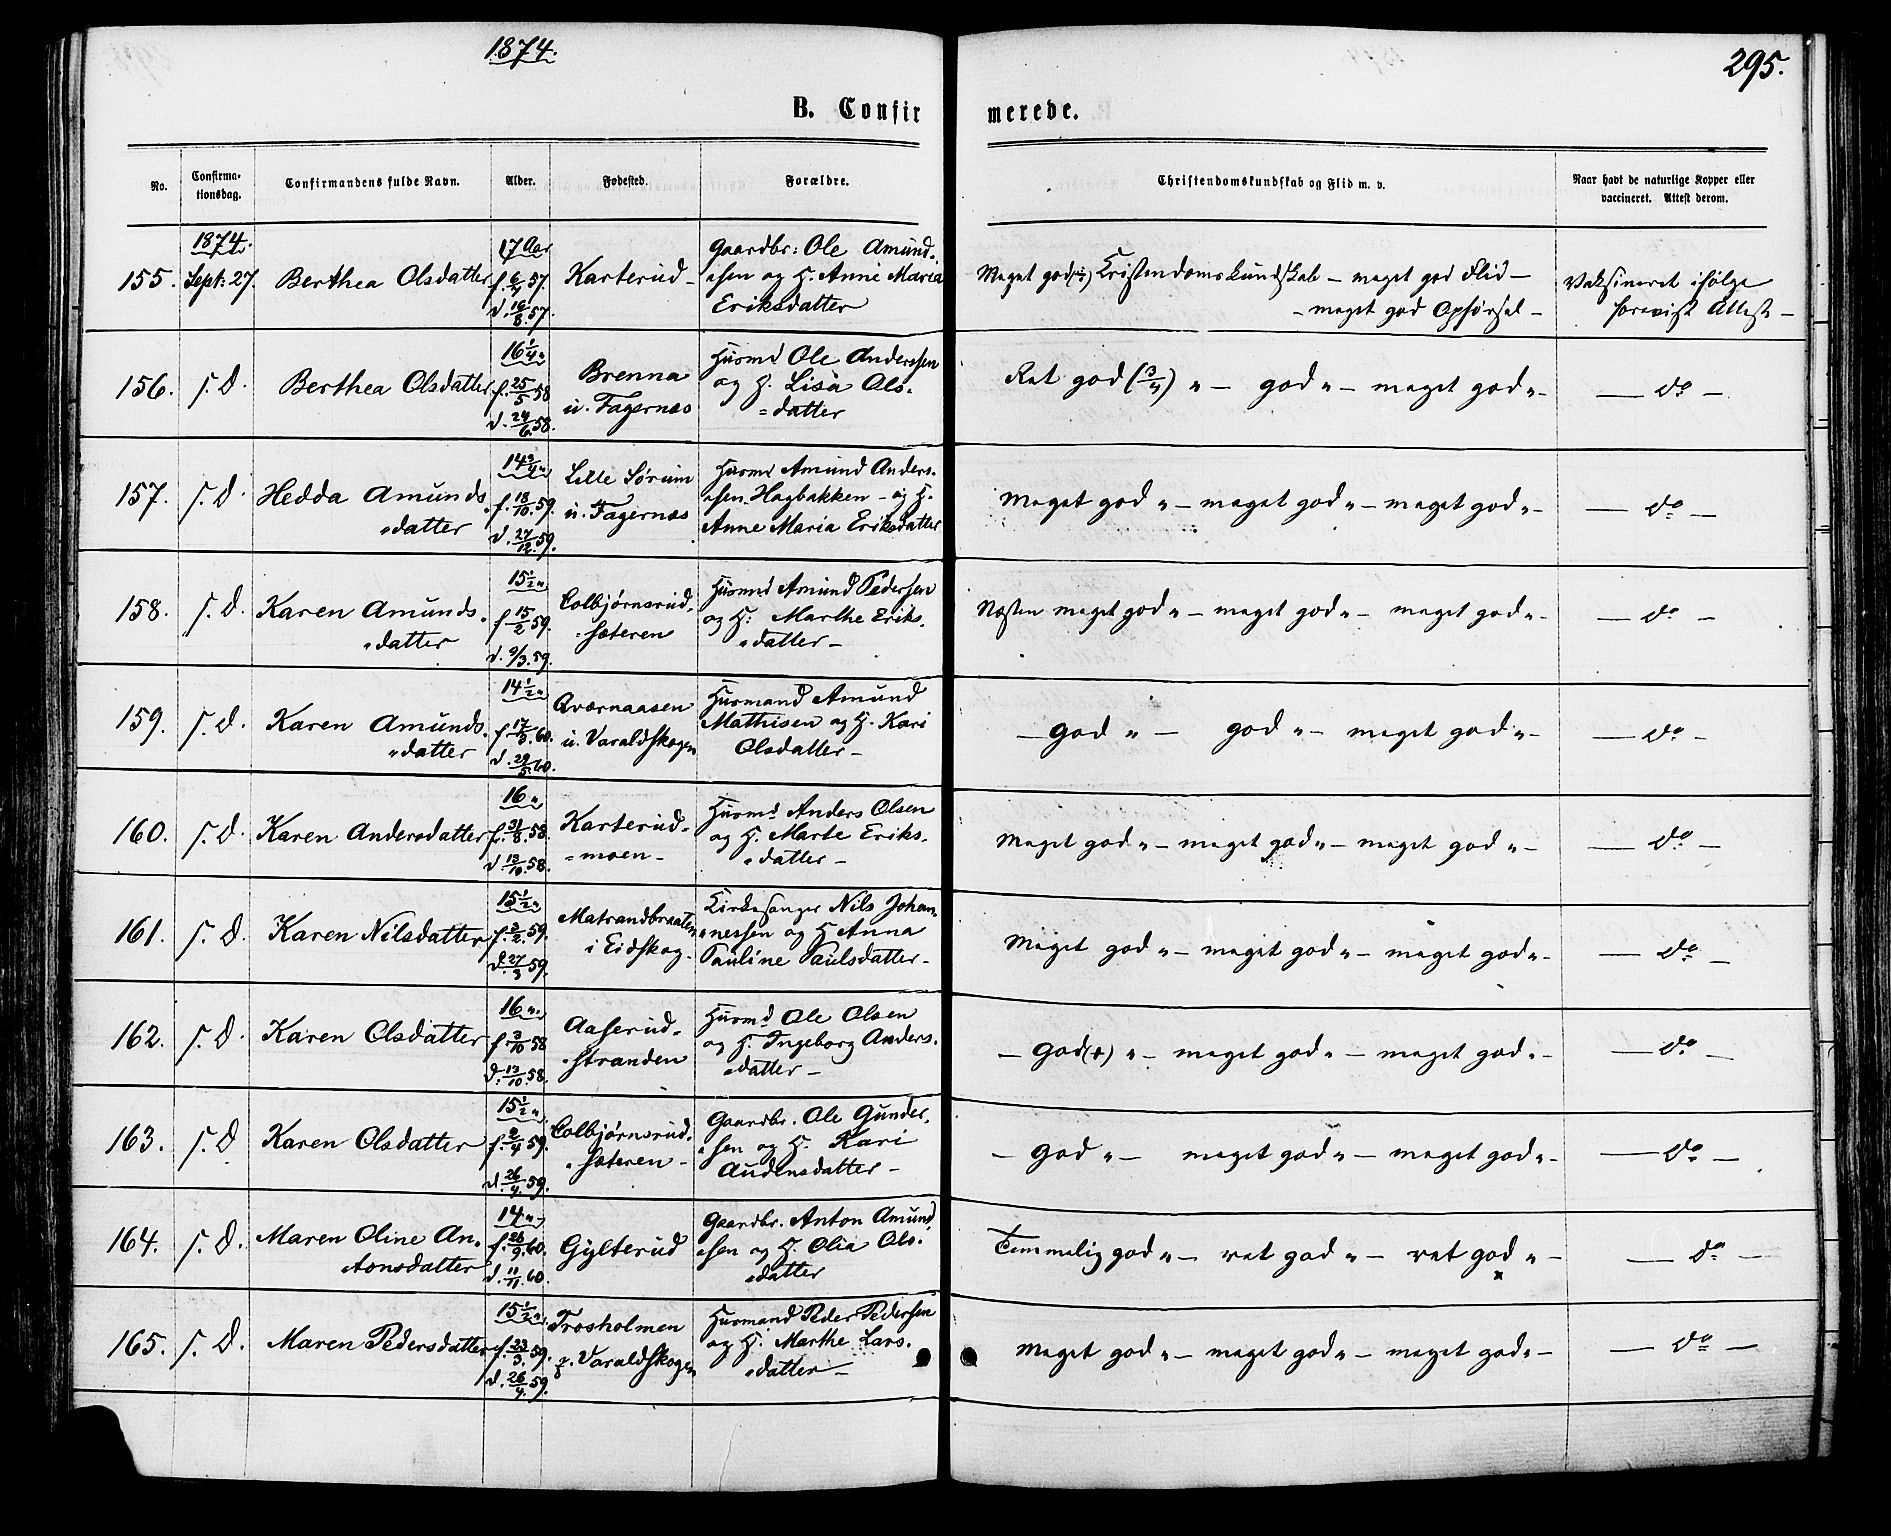 1874.
295.
B. Confir merede.
No.
Confirma-
tionsdag.
Confirmandens fulde Navn.
Alder.
Fødested.
Forældre.
Christendomskundskab og Flid m. v.
Naar havt de naturlige Kopper eller
vaccineret. Attest derom.
1874.
155. Sept: 27. Berthea Olsdatter
17 Aar
d. 16/8. 57.
Karterud -
Gaardbr: Ole Amund-
sen og H. Anne Maria
Eriksdatter
Meget god Kristendomskundskab - meget god Flid -
- meget god Opførsel -
Vaksineret ifølge
forevist Attest -
156. s. D. Berthea Olsdatter
16 1/4 "
f. 25/5 58
d. 24/6. 58.
Brenna
u. Fagernæs
Husmd Ole Anderssen
og H. Lisa Ols-
datter
Ret god (3/4) " - god " - meget god " -
— Do —
157. s. D. Hedda Amunds-
datter
14 3/4 "
f. 18/10. 59.
d. 27/12. 59.
Lille Sørum
u. Fagernæs
Husmd Amund Anders-
sen Hagbakken - og H.
Anne Maria Eriksdatter
Meget god " - meget god " - meget god " -
— Do —
158. s. D. Karen Amunds-
datter
15 1/2 "
f. 15/2 59.
d. 9/3. 59.
Colbjørnsrud-
sæteren
Husmd Amund Pedersen
og H: Marthe Eriks-
datter -
Næsten meget god " - meget god " - meget god " -
— Do —
159. s. D. Karen Amunds-
datter
14 1/2 "
f. 17/3. 60.
d. 29/5. 60.
Qværnaasen
u. Varaldskogen
Husmand Amund
Mathisen og H. Kari
Olsdatter -
- god " - god " - meget god " -
— Do —
160. s. D. Karen Andersdatter
16 "
f. 31/8. 58.
d. 13/10. 58.
Karterud-
moen -
Husmd Anders Olsen
og H. Marte Eriks-
datter -
Meget god " - meget god " - meget god " -
— Do —
161. s. D. Karen Nilsdatter
15 1/2 "
d. 27/3 59.
Matrandbraaten
i Eidskog -
Kirkesanger Nils Johan-
nessen og H Anna
Pauline Paulsdatter -
Meget god " - meget god " - meget god " -
— Do —
162. s. D. Karen Olsdatter
16 "
f. 3/10 58
d. 13/10. 58.
Aaserud-
stranden
Husmd Ole Olsen
og H. Ingeborg Anders-
datter -
- god (+) " - meget god " - meget god " -
— Do —
163. s. D Karen Olsdatter
15 1/2 "
f. 2/4 59.
d. 26/4. 59.
Colbjørnsrud-
sæteren -
Gaardbr. Ole Gunder-
sen og H. Kari
Audensdatter -
- god " - meget god " - meget god " -
— Do —
164. s. D. Maren Oline An-
tonsdatter
14 "
f. 26/9. 60.
d. 11/11. 60.
Gylterud
Gaardbr. Anton Amund-
sen og H. Olia Ols-
datter
Temmelig god " - ret god " - ret god " -
x
— Do —
165. s. D. Maren Pedersdatter
15 1/2 "
f. 23/3. 59.
d. 26/4. 59.
Trosholmen
p. Varaldskogen
Husmand Peder Pedersen
og H. Marthe Lars-
datter -
Meget god " - meget god " - meget god " -
— Do —